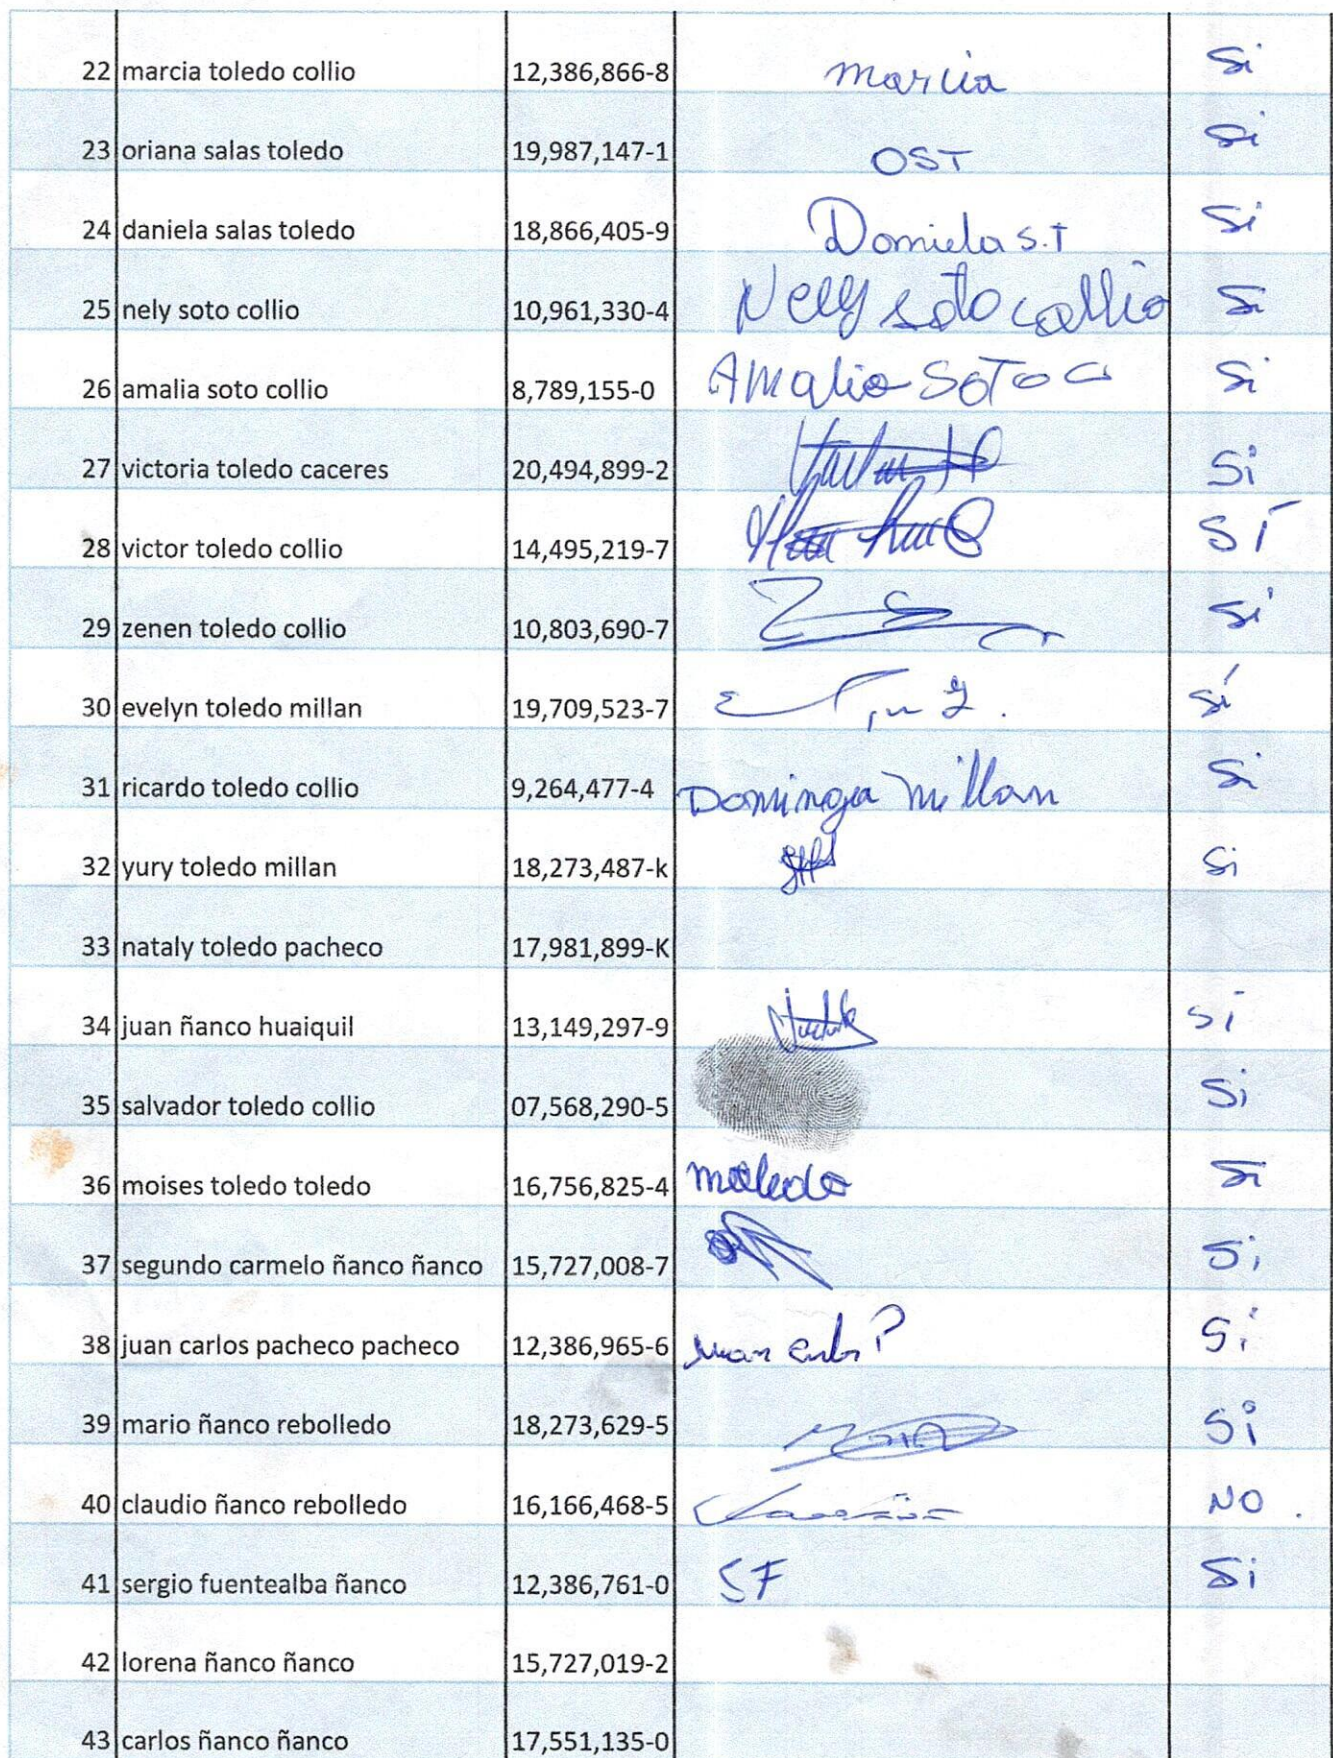 22 marcia toledo collio 12,386,866-8 marcia Si
23 oriana salas toledo 19,987,147-1 OST Si
24 daniela salas toledo 18,866,405-9 Daniela S.T Si
25 nely soto collio 10,961,330-4 Nely soto collio Si
26 amalia soto collio 8,789,155-0 AMalia SOTO C Si
27 victoria toledo caceres 20,494,899-2 Si
28 victor toledo collio 14,495,219-7 SI
29 zenen toledo collio 10,803,690-7 Si
30 evelyn toledo millan 19,709,523-7 Sí
31 ricardo toledo collio 9,264,477-4 Dominga Millan Si
32 yury toledo millan 18,273,487-k Si
33 nataly toledo pacheco 17,981,899-K
34 juan ñanco huaiquil 13,149,297-9 SI
35 salvador toledo collio 07,568,290-5 Si
36 moises toledo toledo 16,756,825-4 Si
37 segundo carmelo ñanco ñanco 15,727,008-7 Si
38 juan carlos pacheco pacheco 12,386,965-6 Juan Carlos P Si
39 mario ñanco rebolledo 18,273,629-5 Si
40 claudio ñanco rebolledo 16,166,468-5 NO.
41 sergio fuentealba ñanco 12,386,761-0 SF Si
42 lorena ñanco ñanco 15,727,019-2
43 carlos ñanco ñanco 17,551,135-0